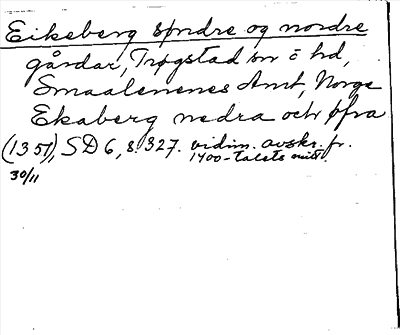 Eikeberg søndre og nordre
gårdar, Trøgstad sn o hd,
Smaalenenes Amt, Norge
Ekaberg nedra och øfra
(1351), SD 6, s. 327. vidim. avskr. fr.
1400-talets mitt.
30/11